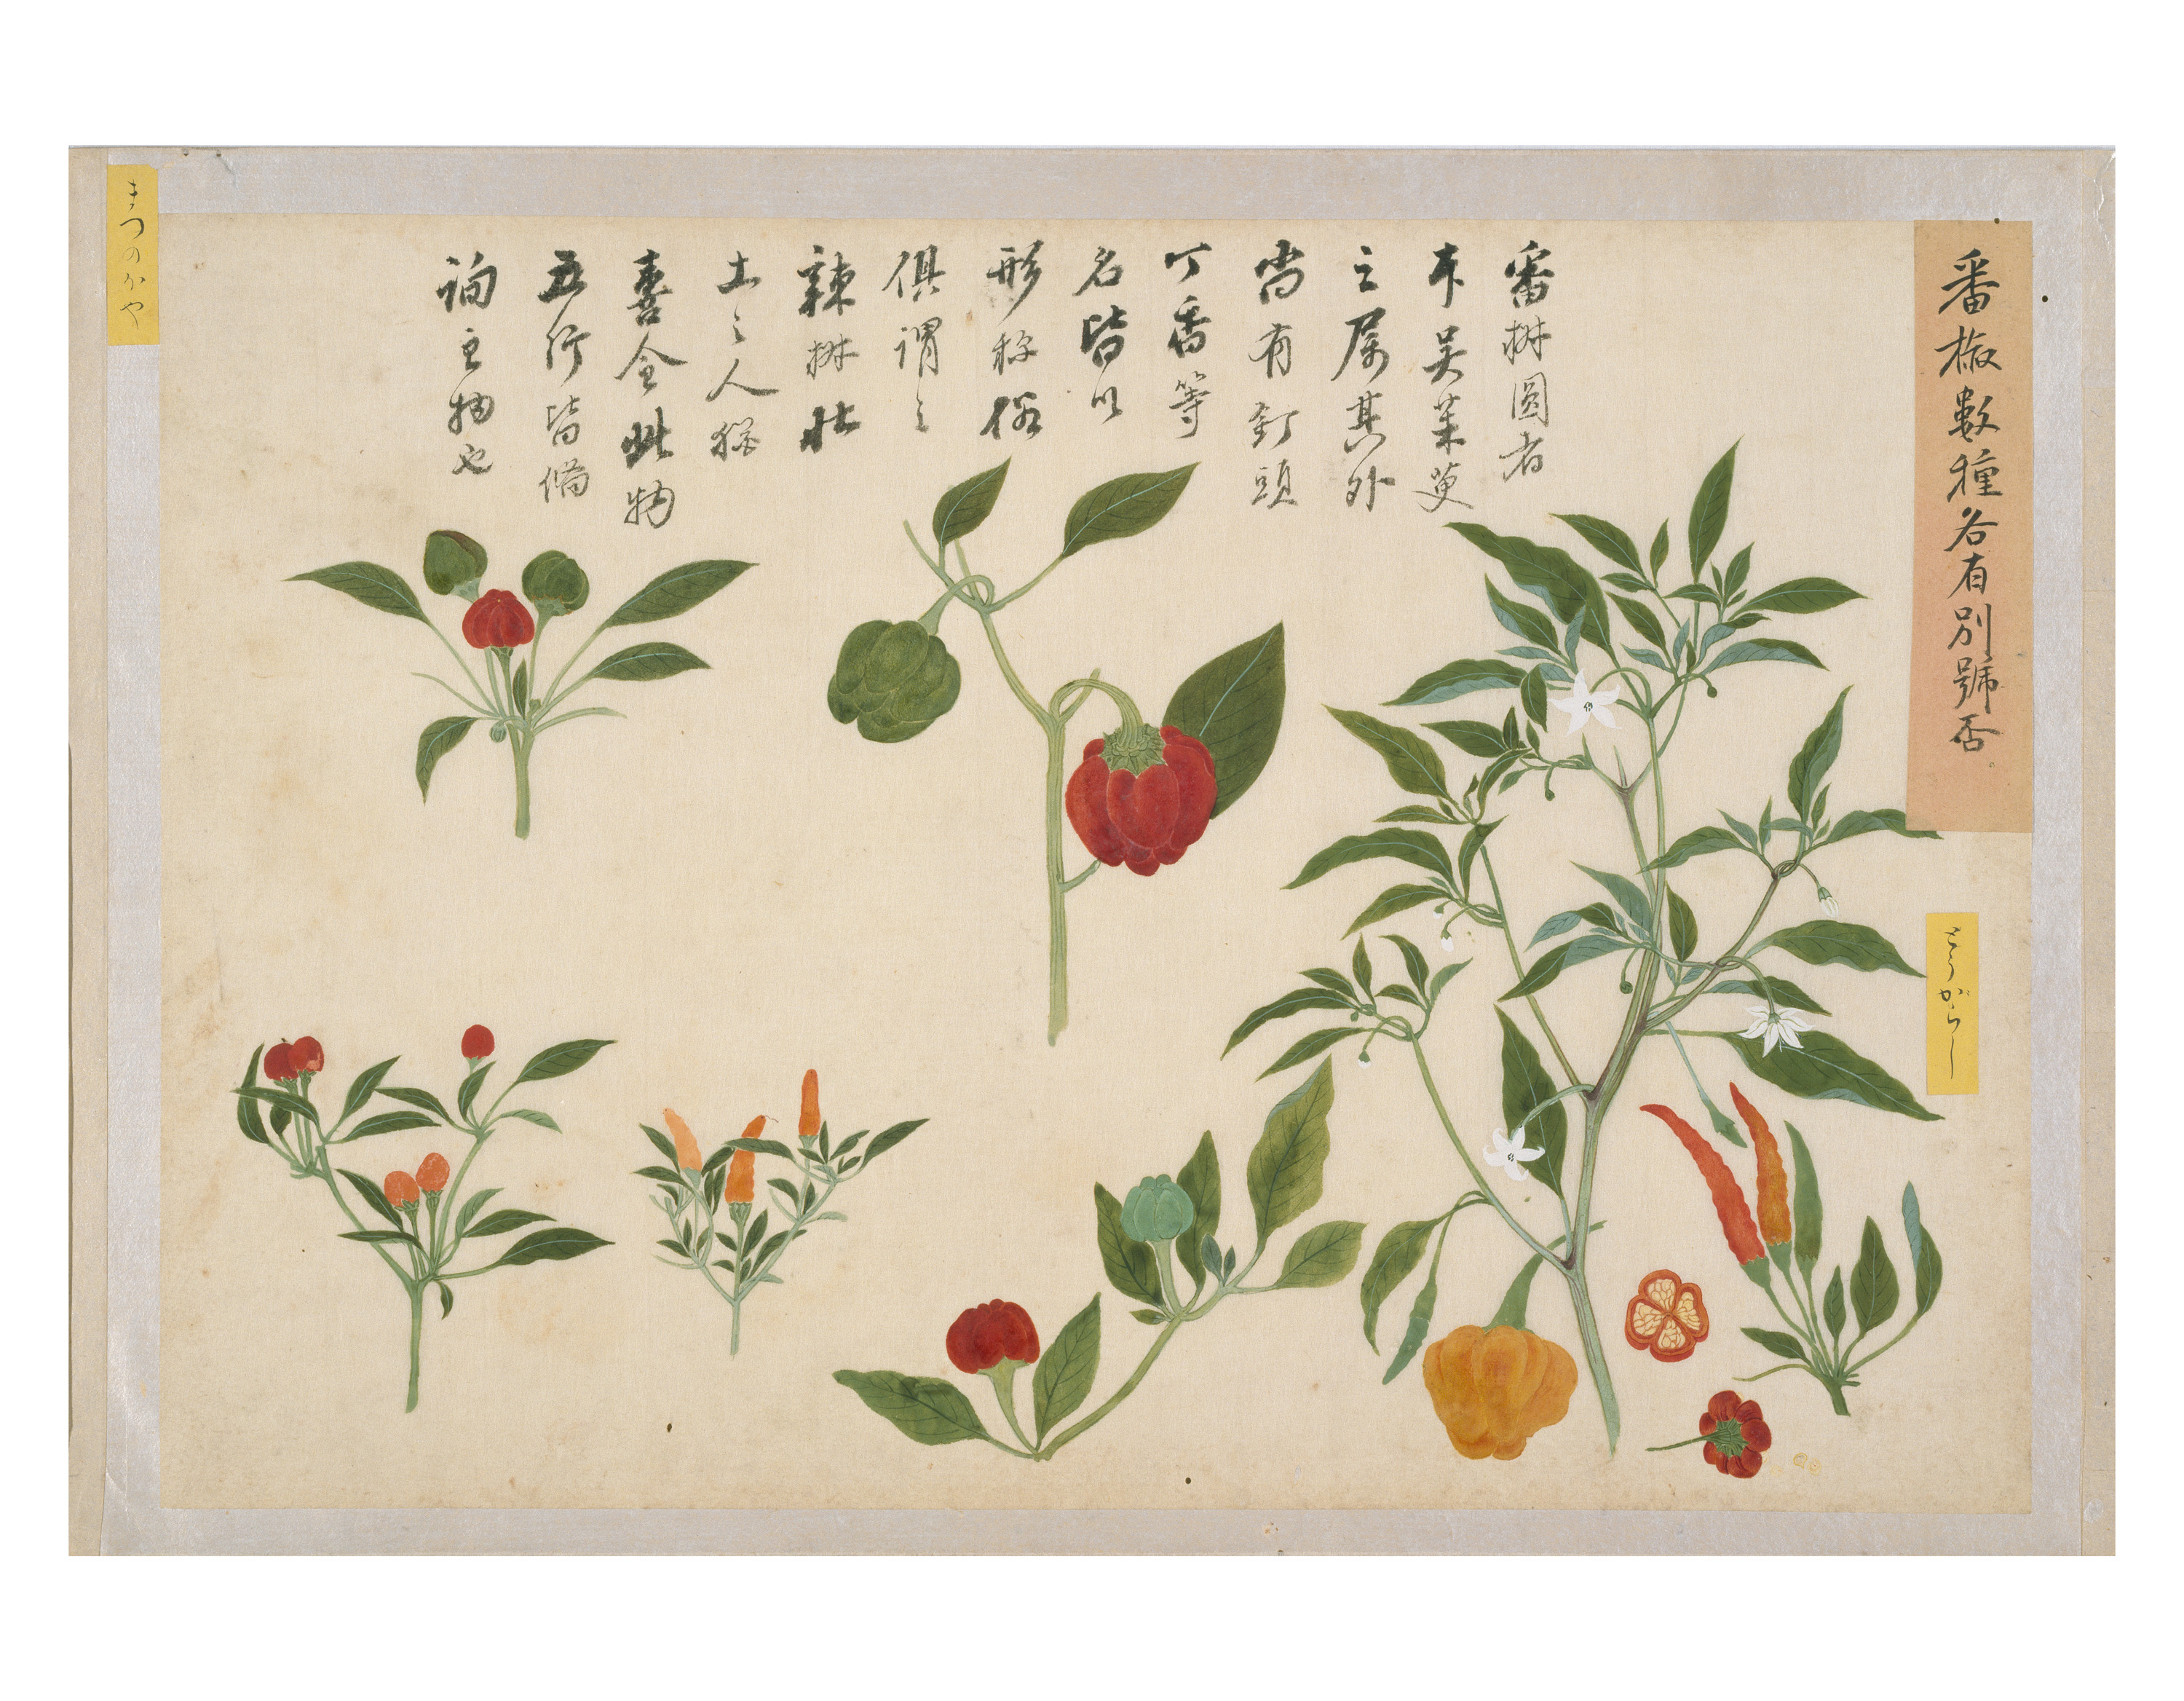 番椒數種各有別號否
とうがらし
番椒圓者
本吴茱萸
之属其外
尚有釘頭
丁香等
名皆以
形称俗
俱謂之
辣椒北
土之人
喜食此物
五行皆俻
物也
まつのかや